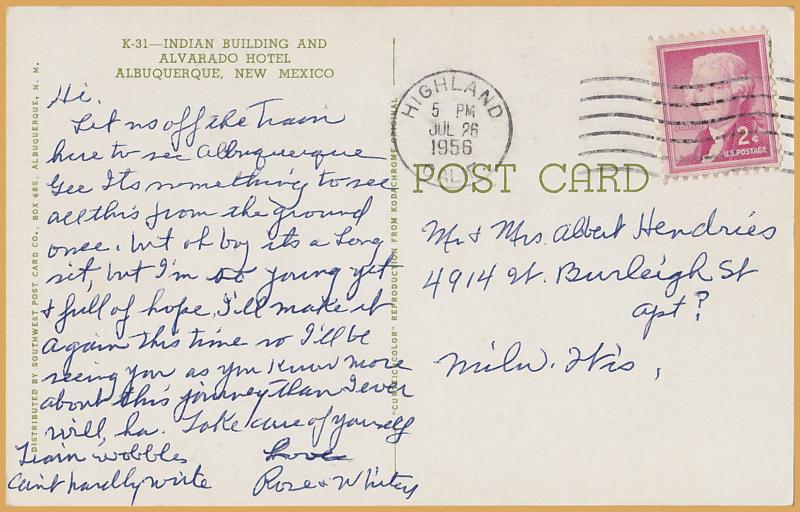 K-31—INDIAN BUILDING AND
ALVARADO HOTEL
ALBUQUERQUE, NEW MEXICO
Hi.
Let us off the Train
here to see Albuquerque
Gee Its something to see
all this from the ground
once. but oh boy its a Long
sit, but I'm so young yet
& full of hope, I'll make it
again this time so I'll be
seeing you as you Know more
about this journey than I ever
will, ha. Take care of yourself
Train wobbles
Cant hardly write
Love
Rose & Whitey
DISTRIBUTED BY SOUTHWEST POST CARD CO., BOX 685, ALBUQUERQUE, N. M.
REPRODUCTION FROM KODACHROME ORIGINAL
HIGHLAND
5 PM
JUL 26
1956
2¢
U.S. POSTAGE
POST CARD
Mr & Mrs. Albert Hendries
4914 W. Burleigh St
apt?
Milw. Wis,